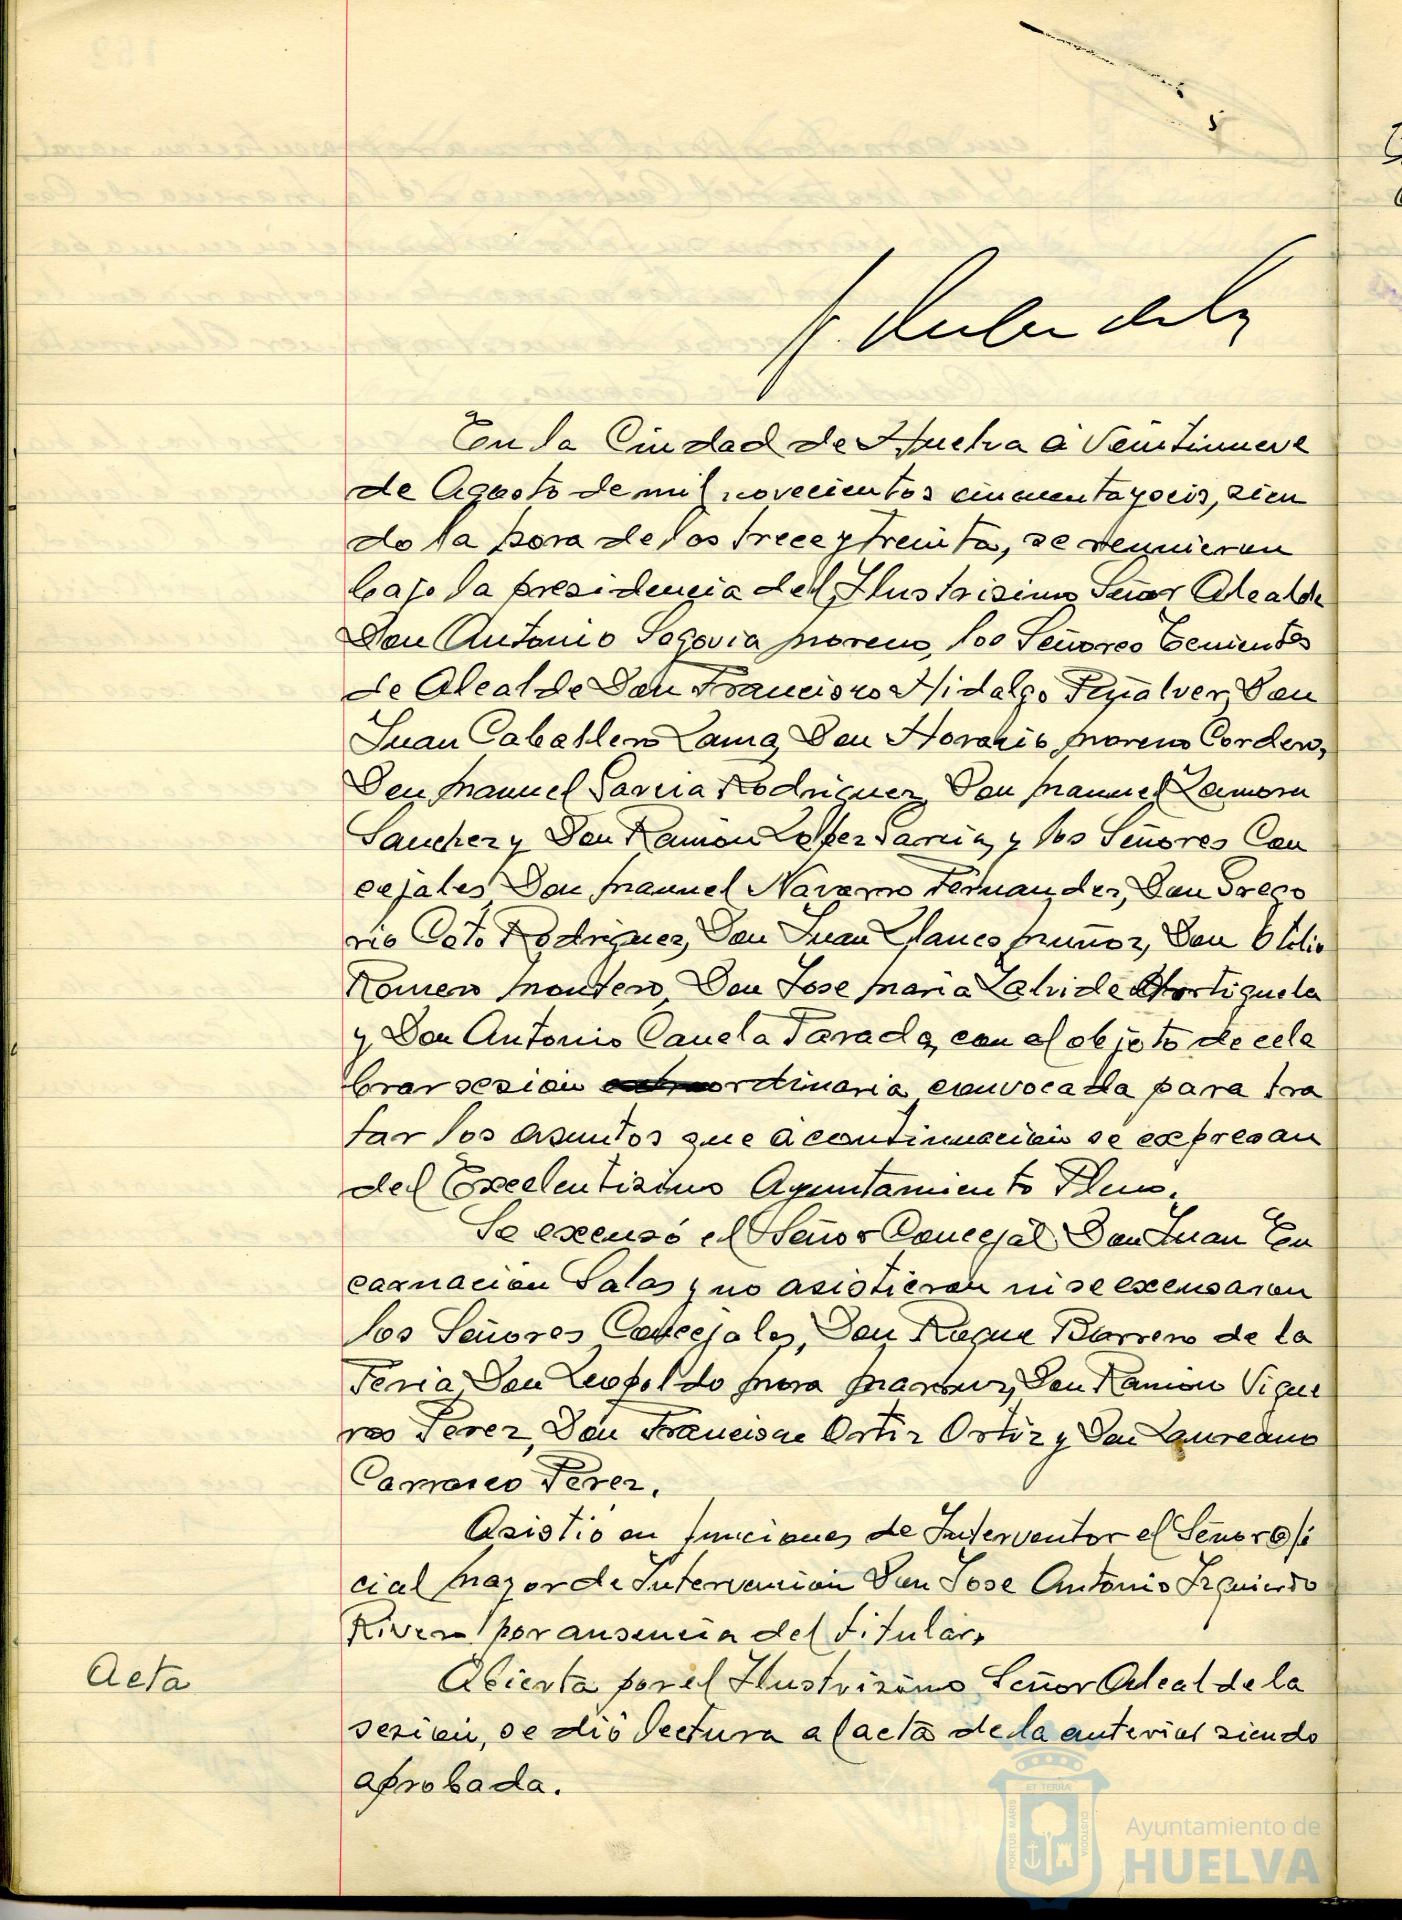 En la Ciudad de Huelva á Veintinueve
de Agosto de mil novecientos cincuenta y seis, sien
do la hora de las trece y treinta, se reunieron
bajo la presidencia del Ilustrisimo Señor Alcalde
Don Antonio Segovia Moreno, los Señores Tenientes
de Alcalde Don Francisco Hidalgo Peñalver, Don
Juan Caballero Lama, Don Horacio Moreno Cordero,
Don Manuel Garcia Rodriguez, Don Manuel Zamora
Sanchez y Don Ramon Lopez Garcia, y los Señores Con
cejales, Don Manuel Navarro Fernandez, Don Grego
rio Coto Rodriguez, Don Juan Llanes Muñoz, Don Otilio
Romero Montero, Don Jose Maria Zalvide Hortiguela
y Don Antonio Canela Parada, con el objeto de cele
brar sesión ordinaria convocada para tra
tar los asuntos que á continuacion se expresan
del Excelentisimo Ayuntamiento Pleno.
Se excusó el Señor Concejal Don Juan En
carnación Salas y no asistieron ni se excusaron
los Señores Concejales, Don Roque Barrero de la
Feria, Don Leopoldo Mora Don Ramon Vigue
ras Perez, Don Francisco Ortiz Ortiz y Don Laureano
Carrasco Perez.
Asistió en funciones de Interventor el Señor Ofi
cial Mayor de Intervencion Don Jose Antonio Izquierdo
Rivero por ausencia del titular.
Acta
Abierta por el Ilustrisimo Señor Alcalde la
sesion, se dió lectura al acta de la anterior siendo
aprobada.
ET TERRÆ
PORTUS MARIS
CUSTODIA
Ayuntamiento de
HUELVA